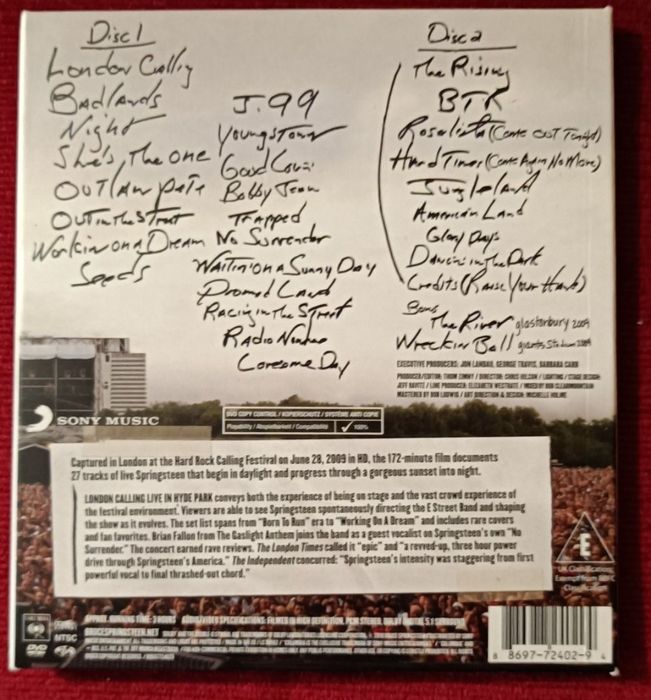 Disc 1
London Calling
Badlands
Night
She's the one
OUTLAW Pete
OUT in the Street
Workin on a Dream
Seeds
J. 99
Youngstown
Good Lovin
Bobby Jean
Trapped
No Surrender
Waitin' on a Sunny Day
Promised Land
Racing in the Street
Radio Nowhere
Lonesome Day
Disc 2
The Rising
BTR
Rosalita (Come OUT Tonight)
Hard Times (Come Again No More)
Jungleland
American Land
Glory Days
Dancin in the Dark
Credits (Raise Your Hand)
Bonus
The River glastonbury 2009
Wreckin Ball giants Stadium 2009
EXECUTIVE PRODUCERS: JON LANDAU, GEORGE TRAVIS, BARBARA CARR
PRODUCER/EDITOR: THOM ZIMNY / DIRECTOR: CHRIS HILSON / LIGHTING / STAGE DESIGN:
JEFF RAVITZ / LINE PRODUCER: ELIZABETH WESTRATE / MIXED BY BOB CLEARMOUNTAIN
MASTERED BY BOB LUDWIG / ART DIRECTION & DESIGN: MICHELLE HOLME
SONY MUSIC
DVD COPY CONTROL / KOPIERSCHUTZ / SYSTÈME ANTI-COPIE
Playability / Abspielbarkeit / Compatibilité
✓ 100%
Captured in London at the Hard Rock Calling Festival on June 28, 2009 in HD, the 172-minute film documents
27 tracks of live Springsteen that begin in daylight and progress through a gorgeous sunset into night.
LONDON CALLING LIVE IN HYDE PARK conveys both the experience of being on stage and the vast crowd experience of
the festival environment. Viewers are able to see Springsteen spontaneously directing the E Street Band and shaping
the show as it evolves. The set list spans from "Born To Run" era to "Working On A Dream" and includes rare covers
and fan favorites. Brian Fallon from The Gaslight Anthem joins the band as a guest vocalist on Springsteen's own "No
Surrender." The concert earned rave reviews. The London Times called it "epic" and "a revved-up, three hour power
drive through Springsteen's America." The Independent concurred: "Springsteen's intensity was staggering from first
powerful vocal to final thrashed-out chord."
E
UK Classification:
Exempt from BBFC
Classification
APPROX. RUNNING TIME: 3 HOURS AUDIO/VIDEO SPECIFICATIONS: FILMED IN HIGH DEFINITION, PCM STEREO, DOLBY DIGITAL 5.1 SURROUND
BRUCESPRINGSTEEN.NET
NTSC
DVD
8 8697-72402-9 4